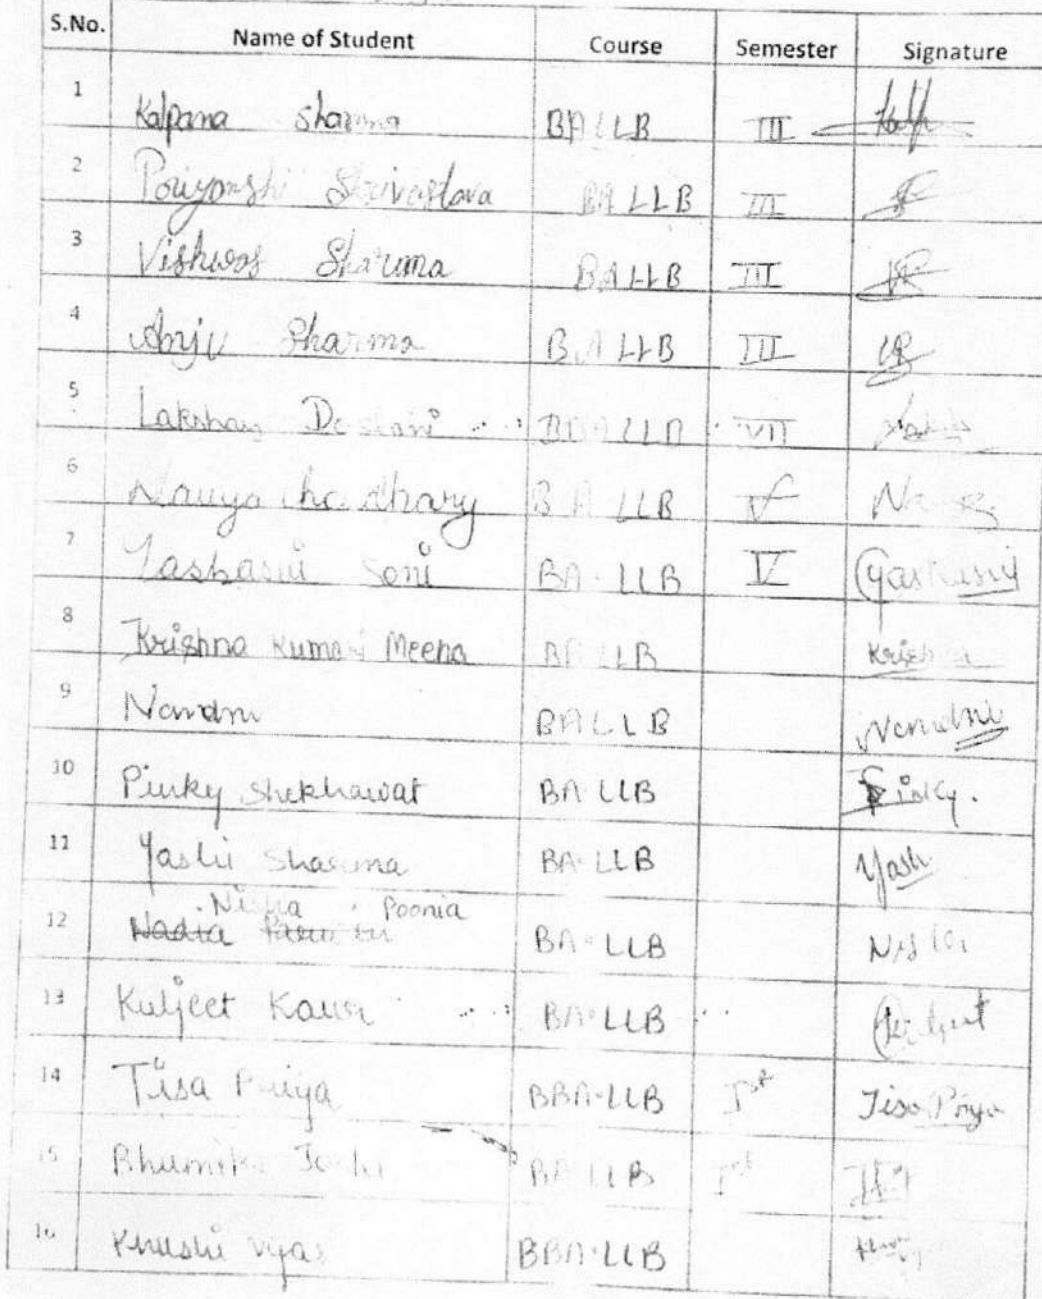 S.No. Name of Student Course Semester Signature
1 Kalpana Sharma BALLB III
2 Poriyanshi Srivastava BA LLB III
3 Vishwas Sharma BALLB III
4 Anju Sharma B.A LLB III
5 Lakshay BBA LLB VII
6 Navya Choudhary B A LLB V
7 Yashasvi Soni BA. LLB V Yashasvi
8 Krishna Kumari Meena BA LLB Krishna
9 Nandni BALLB Nandni
10 Pinky Shekhawat BA LLB Pinky.
11 Yashi Sharma BA-LLB Yashi
Nisha Poonia
12 Nadia BA-LLB Nisha
13 Kuljeet Kaur BA-LLB Kuljeet
14 Tisa Priya BBA-LLB Ist Tisa Priya
15 Bhumika Joshi BA LLB Ist
16 Khushi Vyas BBA-LLB